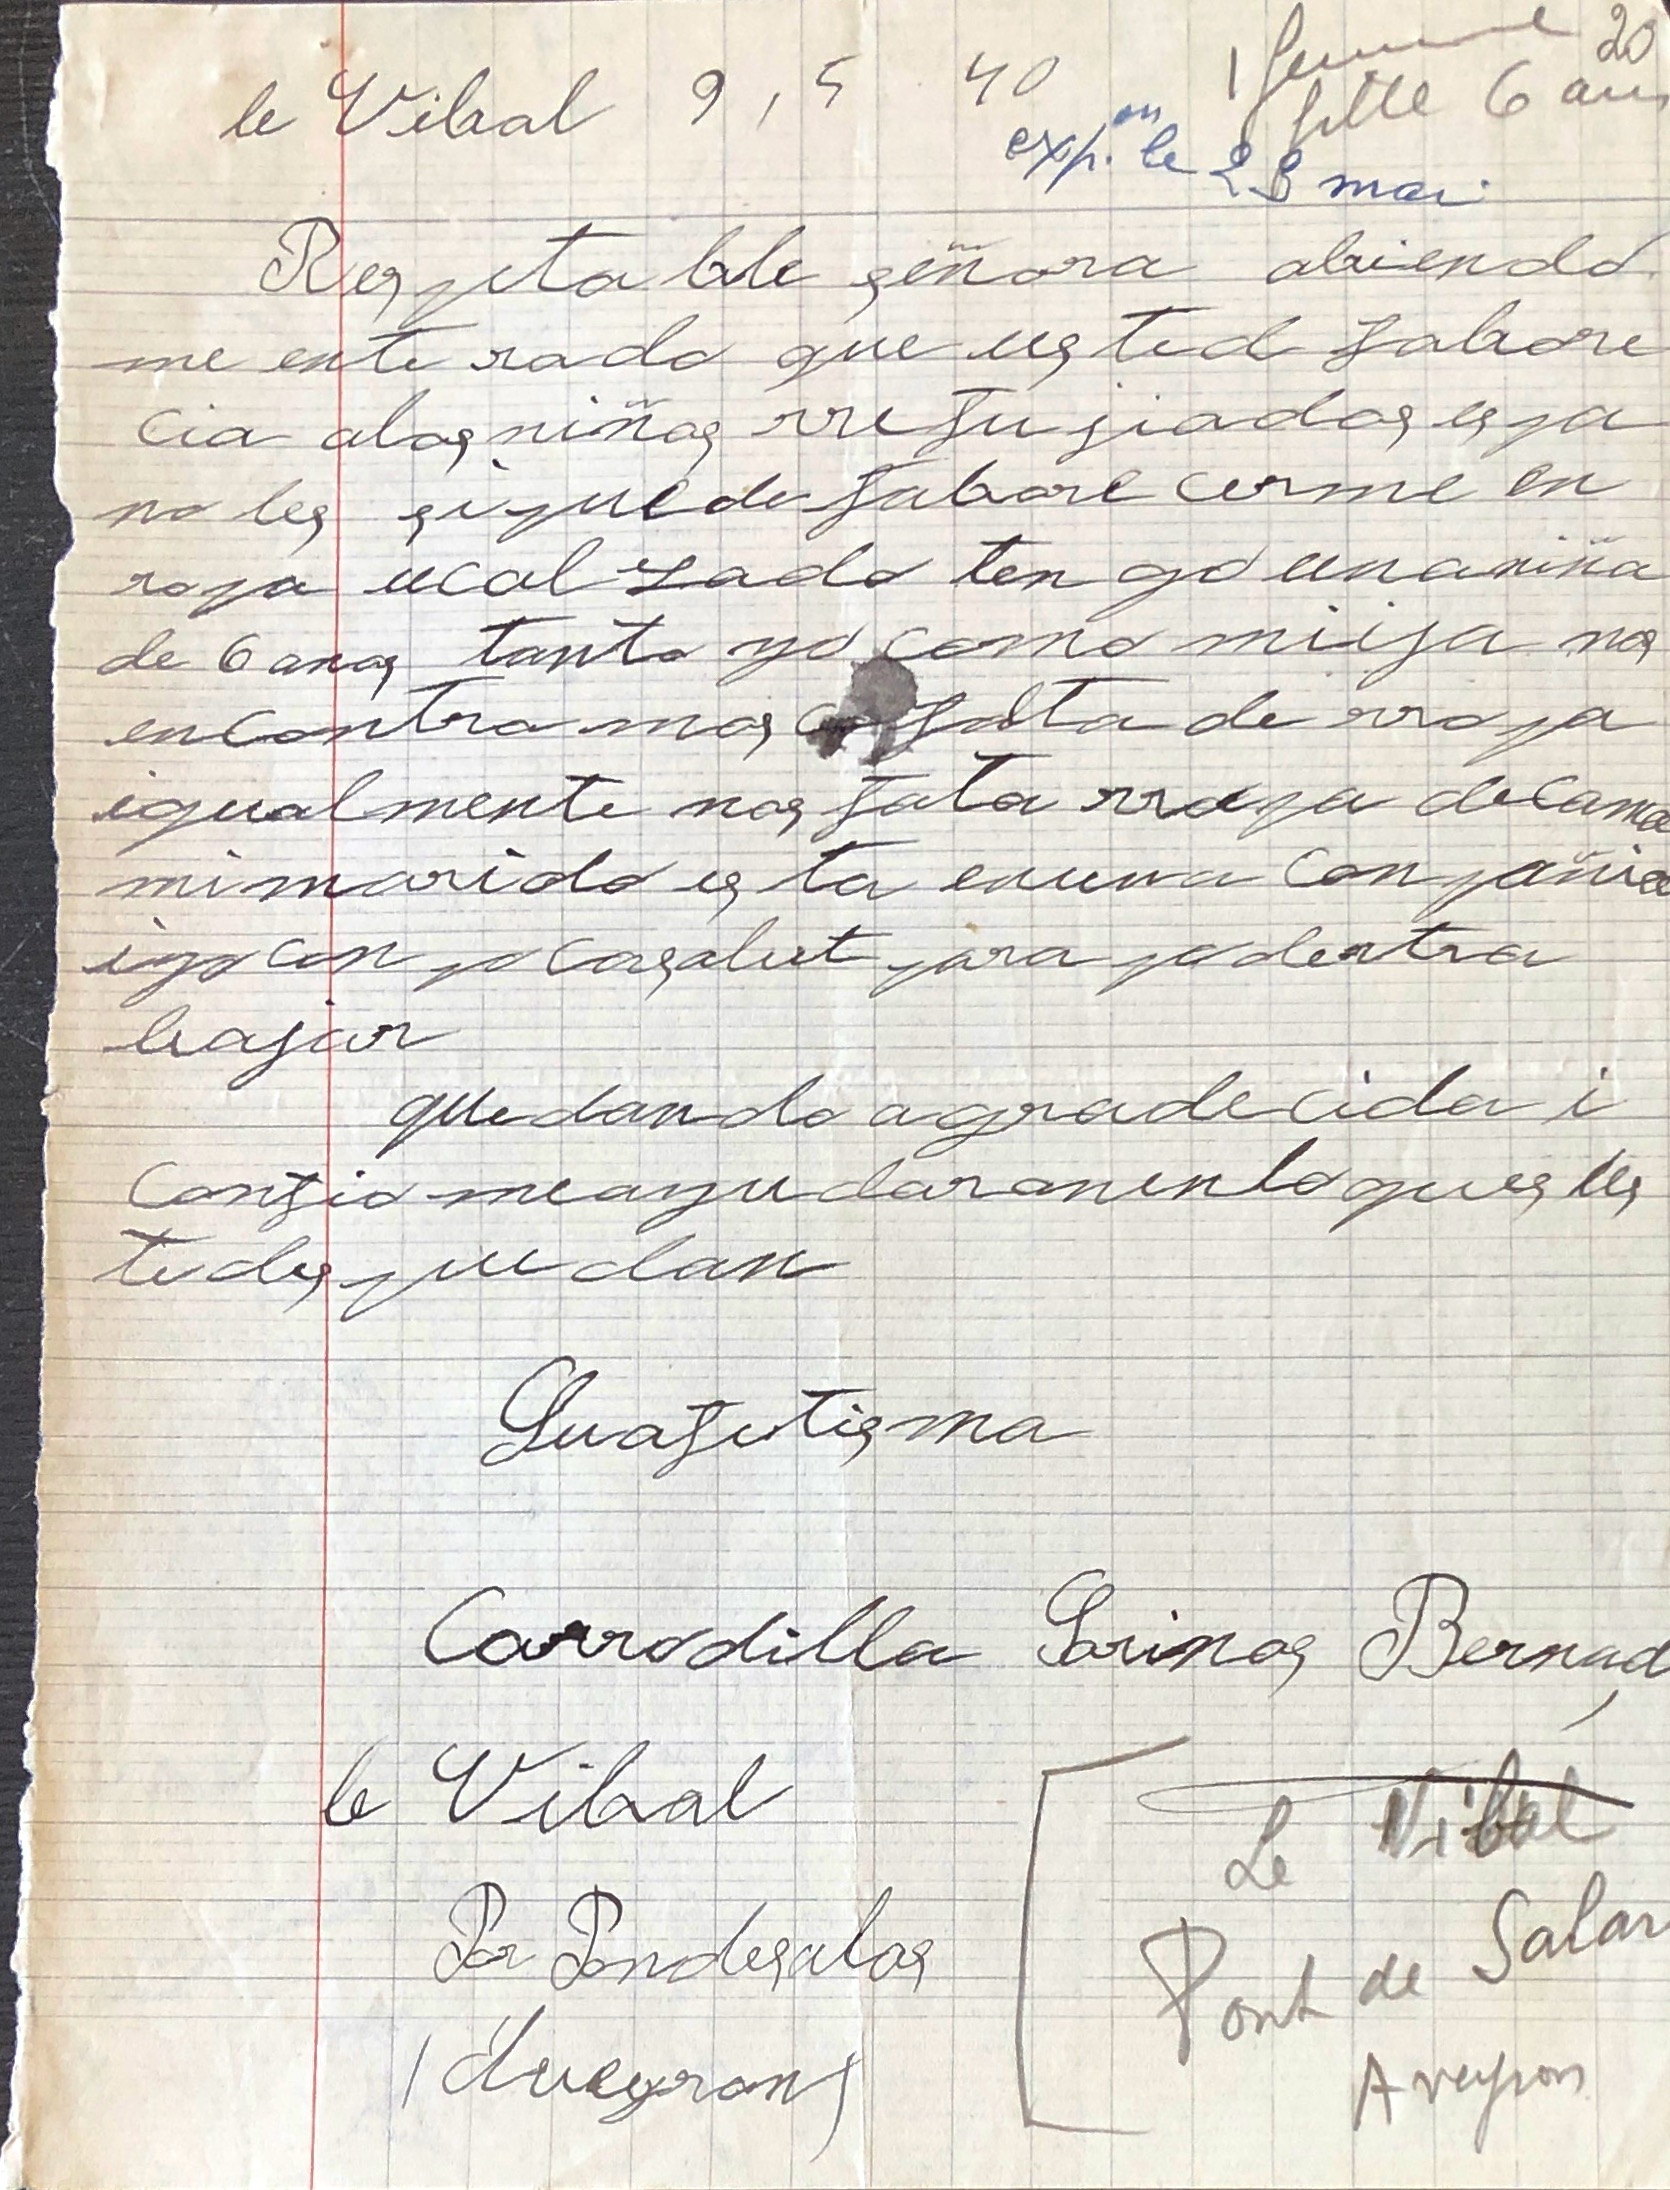 20
1 femme
le Vibal 9, 5 40
fille 6 ans
exp. on le 23 mai
Respetable señora abiendo
me enterado que usted fabore
cia alos niños rrefujiados espa
noles si puede faborecerme en
ropa ucalzado tengo unaniña
de 6 anos tanto yo como miija nos
encontramos falta de rropa
igualmente nos fata rropa decama
mimarido esta enuna conpañia
iyo con pocasalut para podertra
bajar
quedando agradecida i
confio meayudaranenlo que us
tedes puedan
Suafetisma
Carrodilla Sarinas Bernad
le Vibal
Por Pondesalas
(Aveyron)
Le Vibal
Pont de Salar
Aveyron